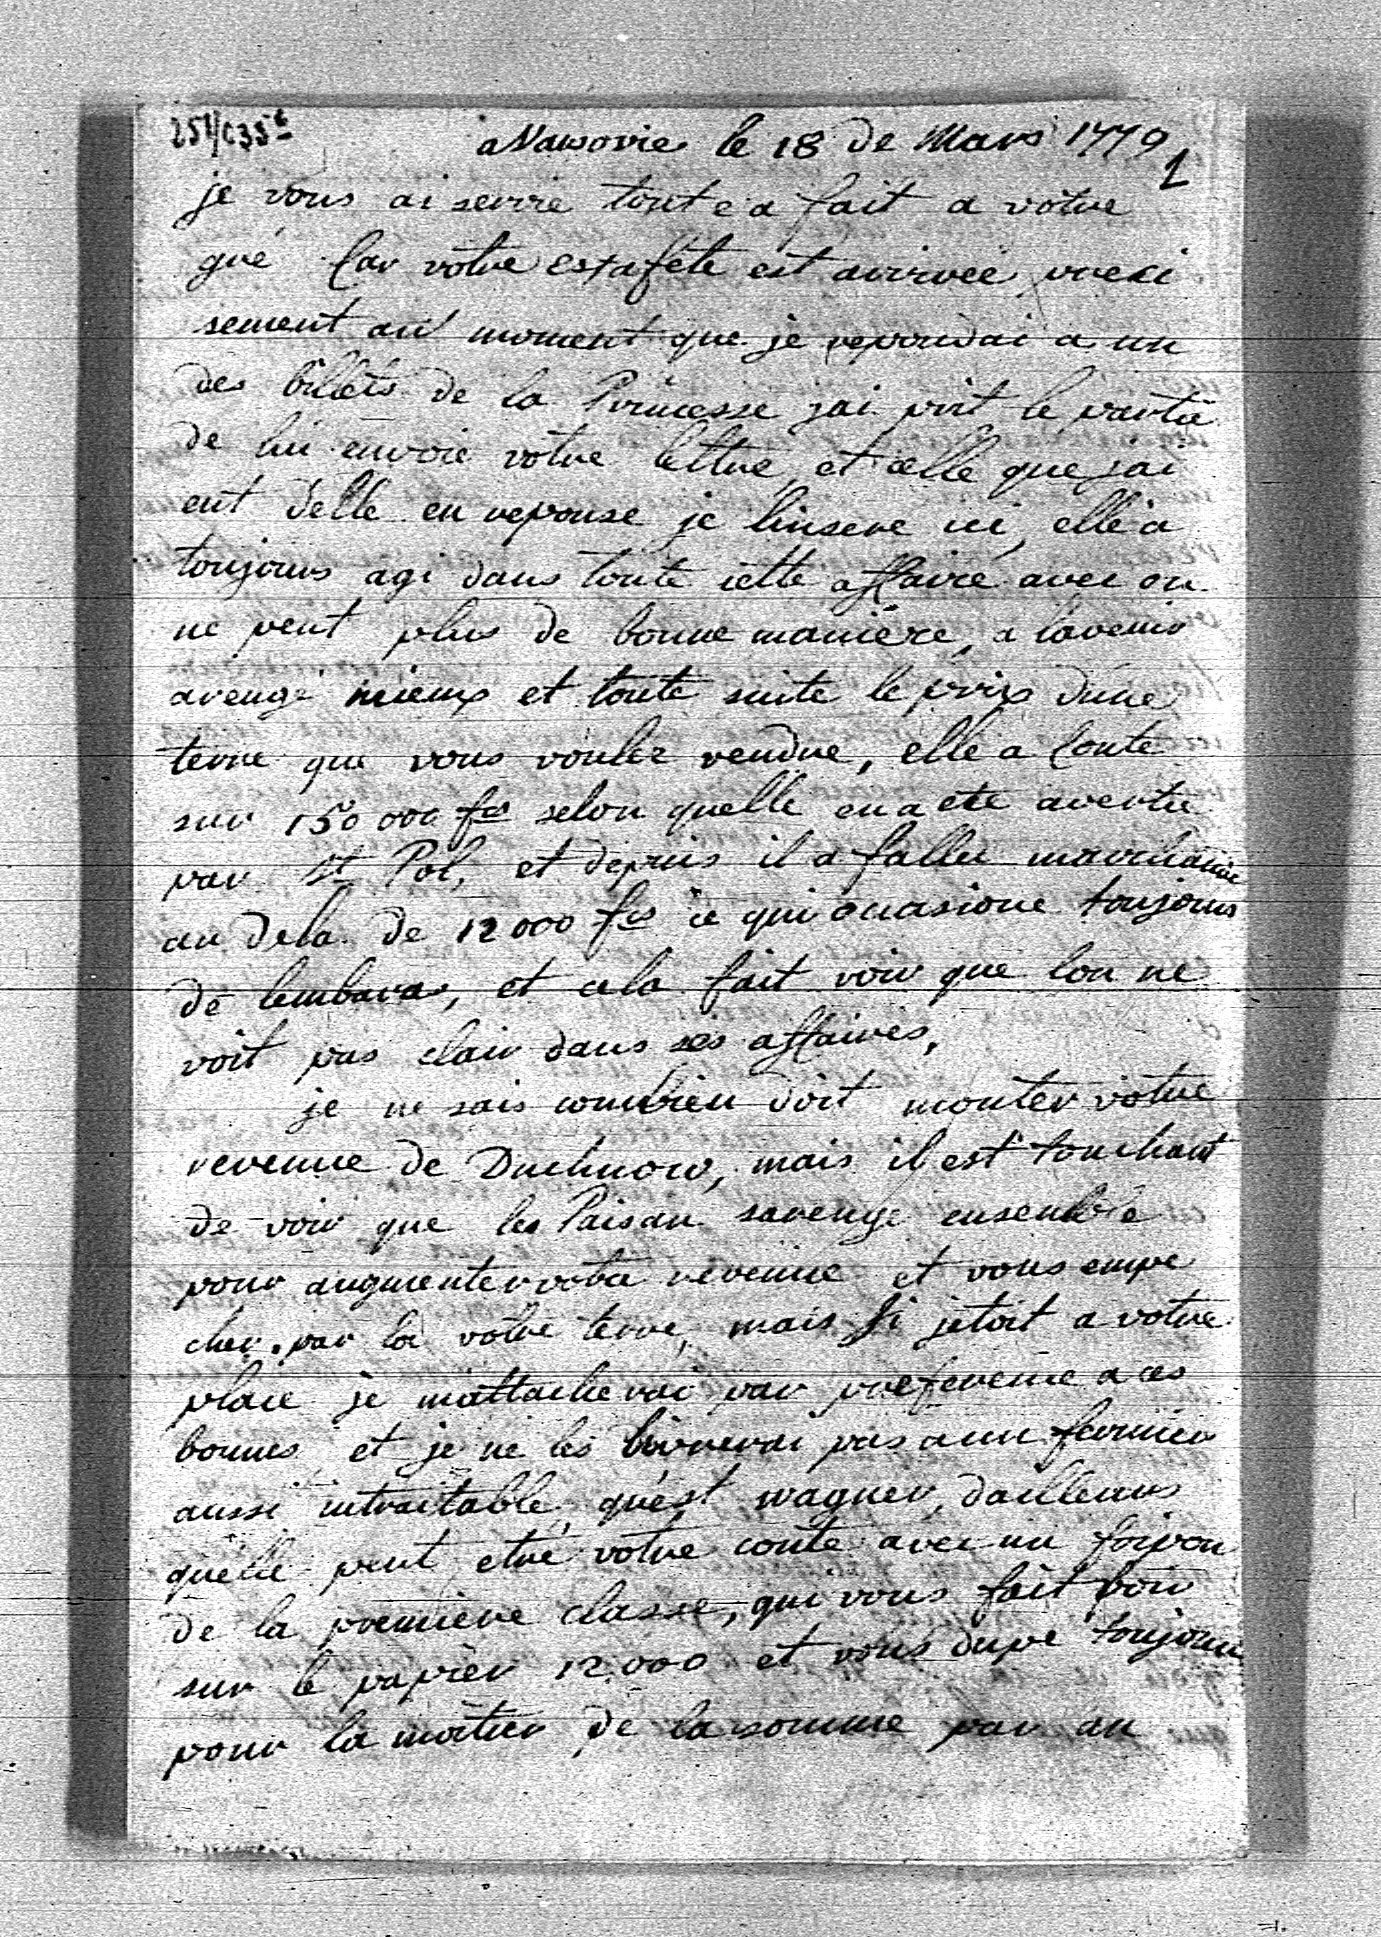 251/C35c
a Varsovie le 18 de Mars 1779
1
je vous ai servie tout e a fait a votre
gré Car votre estafete est arrivée preci
sement au moment que je repondai a un
des billets de la Princesse jai prit le partie
de lui envoié votre lettre et celle que jai
eut delle en reponse je linsere ici, elle a
toujours agi dans toute cette affaire avec on
ne peut plus de bonne maniere, a lavenir
arengé mieux et toute suite le prix dune
terre que vous voulez vendre, elle a Conté
sur 150 000 fs selon quelle en a eté avertie
par St Pol, et depuis il a fallu marchande
au dela de 12 000 fs ce qui ocasione toujours
de lembaras, et cela fait voir que lon ne
voit pas clair dans ses affaires,
je ne sais combien doit monter votre
revenue de Duchnow, mais il est touchant
de voir que les Paisan sarenge ensemble
pour augmenter votre revenue et vous empe
cher par la votre terre, mais Si jetoit a votre
place je mattacherai par preference a ces
bonnes et je ne les livrerai pas a un fermier
aussi intraitable, qu'est wagner, dailleurs
quelle peut etre votre conte avec un fripon
de la premiere classe, qui vous fait voir
sur le papier 12 000 et vous dupe toujours
pour la moitier de la somme par an